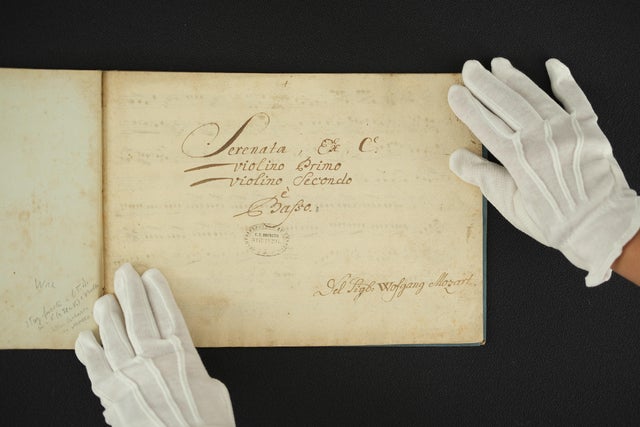 Serenata, Ex C.
violino Primo
violino Secondo
è
Basso.
Del Sigr. Wofgang Mozart.